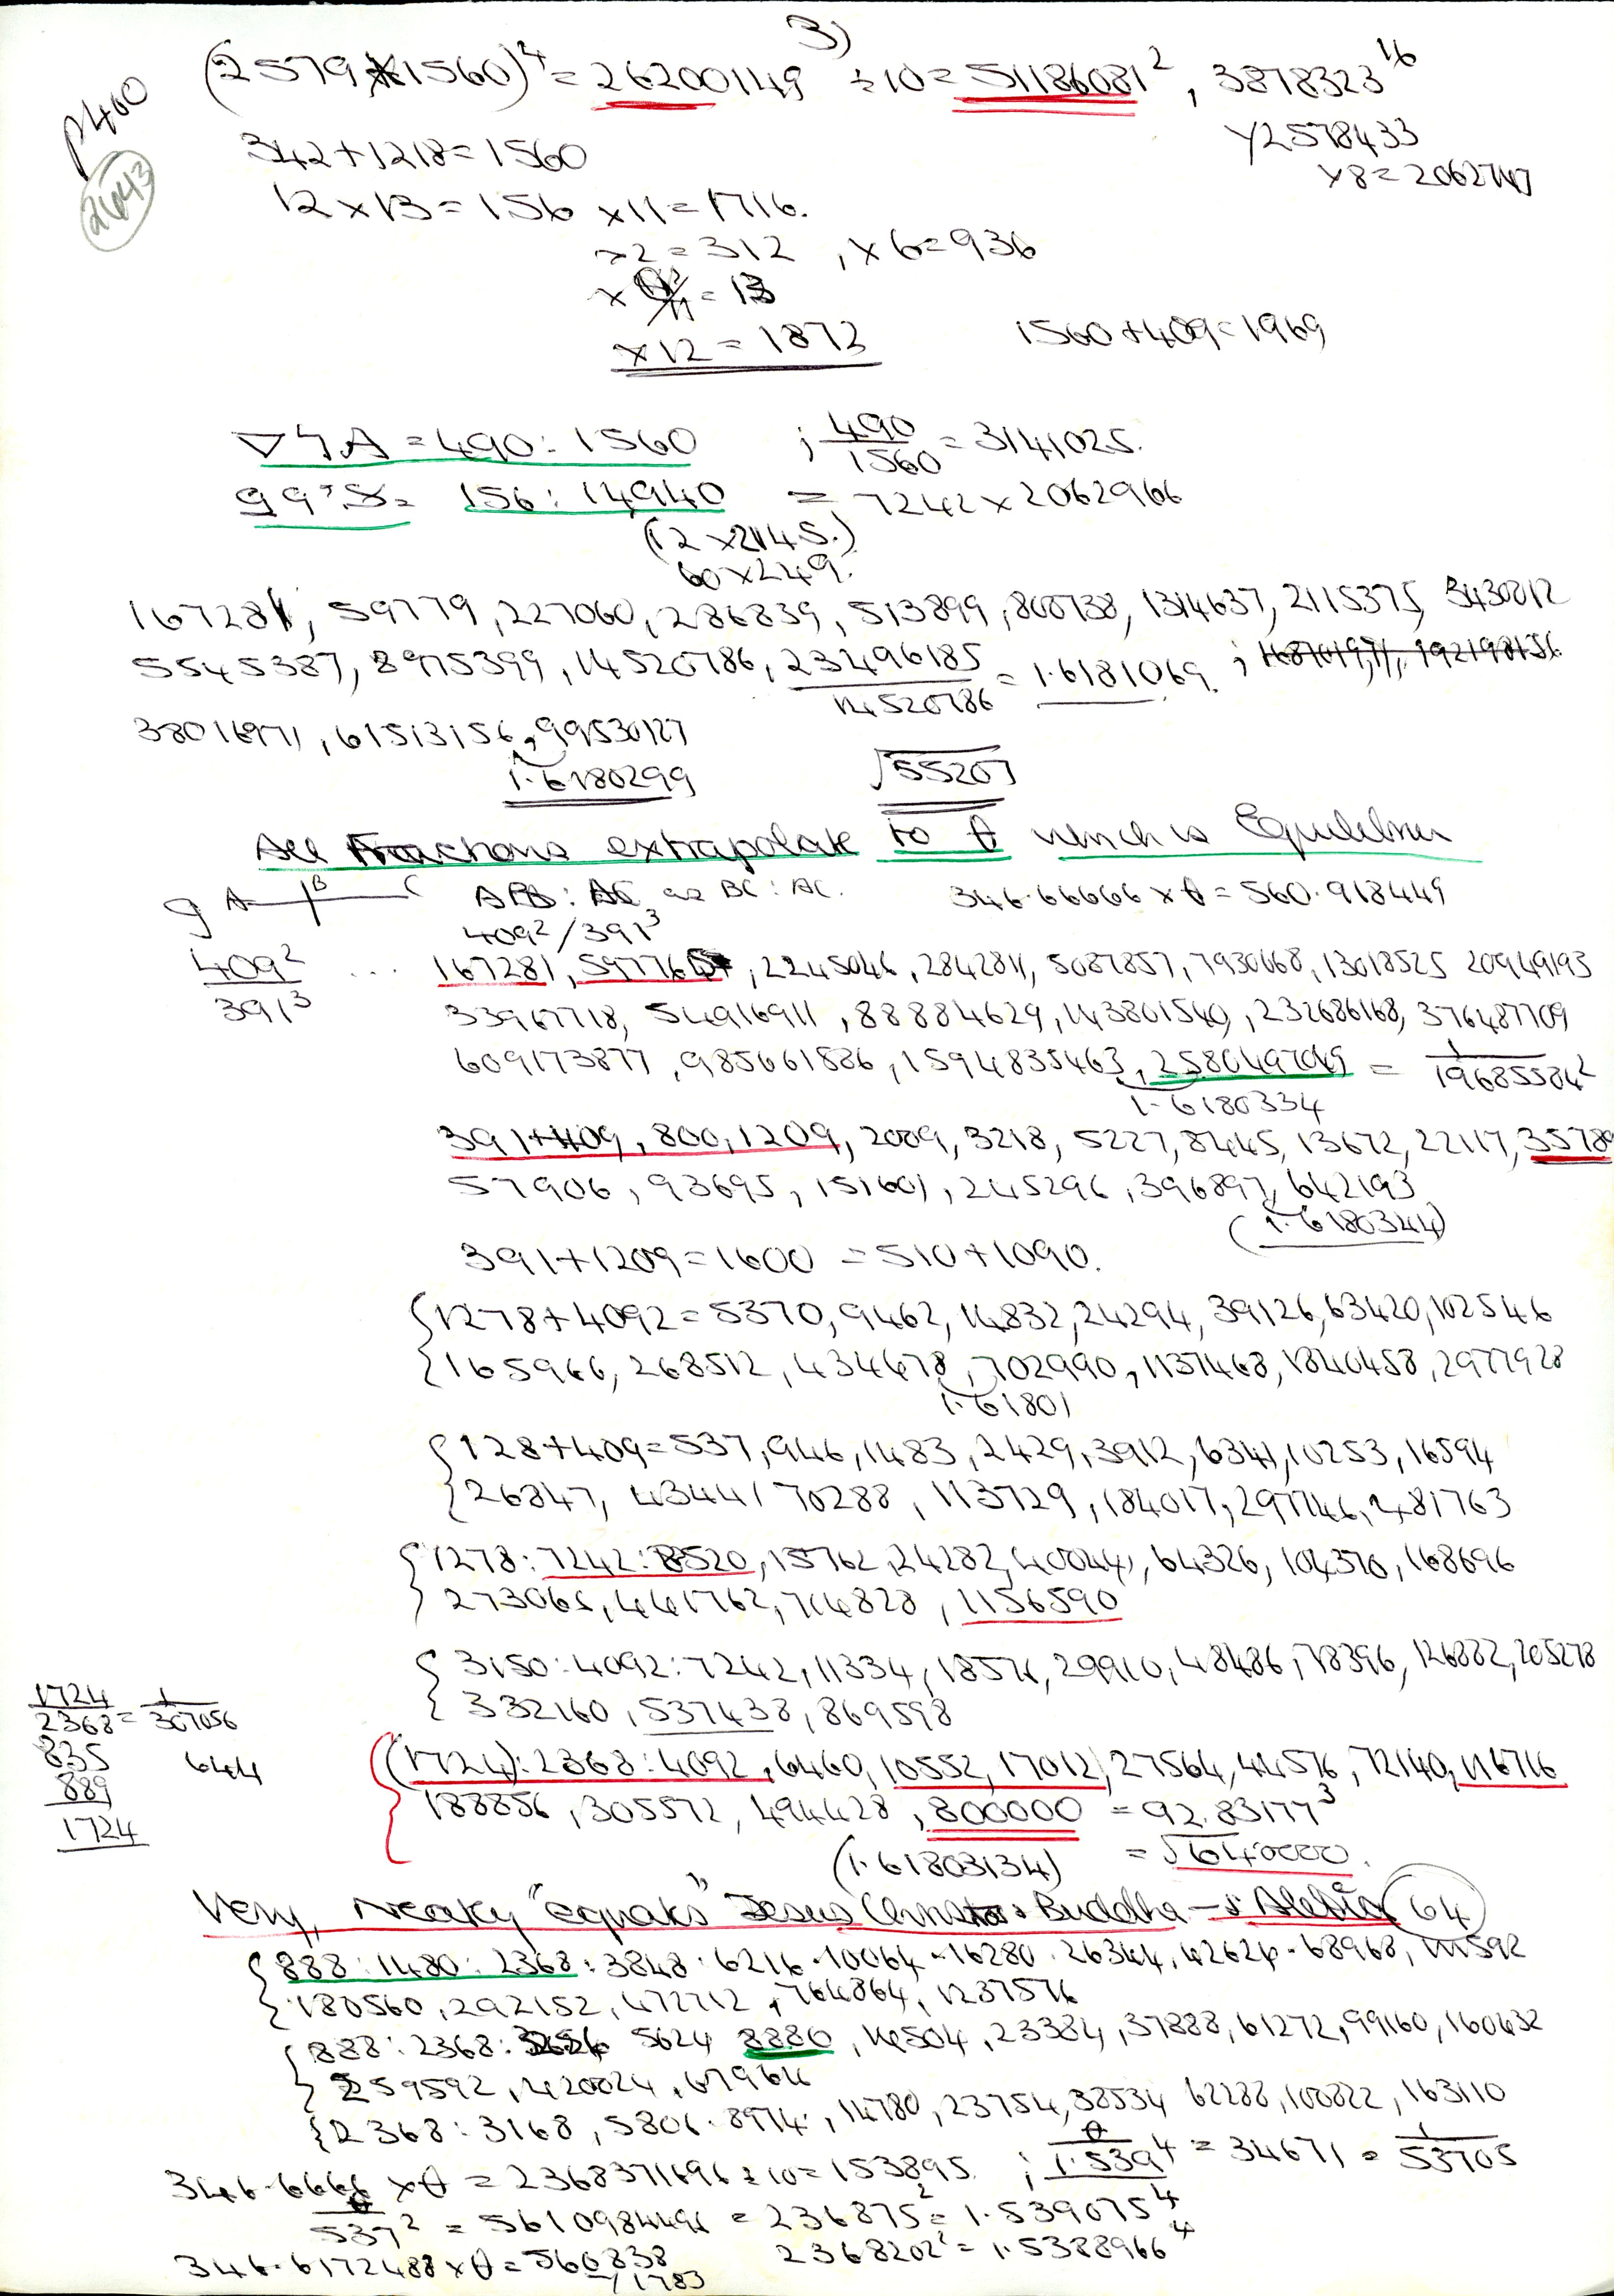 3)
(2579 x 1560)⁴ = 26200149 ÷10 = 51186081², 3878323¹⁶
p400
2643
y2578433
x8=2062747
342+1218=1560
12x13=156 x11=1716.
x2=312, x6=936
=13
x12=1872
1560+409=1969
=490:1560 ; 490/1560 = 3141025.
156:14940 = 7242x2062966
60x249.
167281, 59779, 227060, 286839, 513899, 800738, 1314637, 2115375, 3430012
5545387, 8975399, 14520786, 23496185/14520786 = 1.6181069. ;
38016971, 61513156, 99530127
1.6180299
√55207
All Fractions extrapolate to θ which is Equilibrium
g A B C : as BC:AC. 346.66666 x θ = 560.918449
409²/391³
409²/391³ ... 167281, , 2245046, 2842811, 5087857, 7930668, 13018525 20949193
33967718, 54916911, 88884629, 143801540, 232686168, 376487709
609173877, 985661586, 1594835463, 2580497049 = 1/19685584²
1.6180334
391+409, 800, 1209, 2009, 3218, 5227, 8445, 13672, 22117, 35789
57906, 93695, 151601, 245296, 396897, 642193
(1.6180344)
391+1209=1600 =510+1090.
1278+4092=5370, 9462, 14832, 24294, 39126, 63420, 102546
165966, 268512, 434478, 702990, 1137468, 1840458, 2977928
1.61801
128+409=537, 946, 1483, 2429, 3912, 6341, 10253, 16594
26847, 43441 70288, 113729, 184017, 297746, 481763
1278:7242:8520, 15762, 24282, 40044, 64326, 104370, 168696
273066, 441762, 714828, 1156590
3150:4092:7242, 11334, 18576, 29910, 48486, 78396, 126882, 205278
332160, 537438, 869598
1724/2368 = 1/307056
835 644
889
1724
(1724):2368:4092, 6460, 10552, 17012, 27564, 44576, 72140, 116716
188856, 305572, 494428, 800000 = 92.83177³
(1.61803134) = √640000.
Very, Nearly "equals" Jesus Christos : Buddha 64
888:1480:2368:3848:6216.10064-16280.26344, 42624.68968, 111592
180560, 292152, 472712, 764864, 1237576
888:2368: 5624 8880, 14504, 23384, 37888, 61272, 99160, 160432
259592, 420024, 679616
2368:3168, 5806.8974, 14780, 23754, 38534 62288, 100822, 163110
346.6666 x θ = 2368371696 ÷10=153895. ; θ/1.539⁴ = 34671 = 1/53705
θ/537² = 5610984496 = 236875² = 1.539075⁴
346.6172488 x θ = 560838 2368202² = 1.5388966⁴
/1783